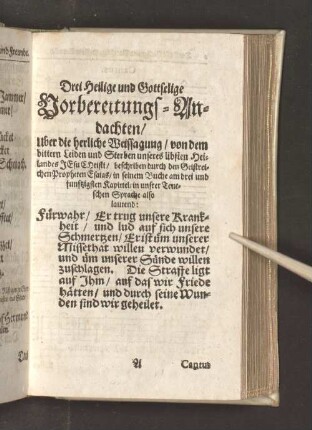 und Freunde.
Jammer/
Drei Heilige und Gottselige
Vorbereitungs-An-
dachten/
Uber die herliche Weissagung/ von dem
bittern Leiden und Sterben unseres libsten Hei-
landes JEsu CHristi/ beschriben durch den Geistrei-
chen Propheten Esaias/ in seinem Buche am drei und
funfzigsten Kapittel: in unsrer Teut-
schen Sprache also
lautend:
Fürwahr/ Er trug unsere Krank-
heit/ und lud auf sich unsere
Schmertzen/ Er ist üm unserer
Missethat willen verwundet/
und üm unserer Sünde willen
zuschlagen. Die Straffe ligt
auf Ihm/ auf das wir Friede
hätten/ und durch seine Wun-
den sind wir geheilet.
A Cantus